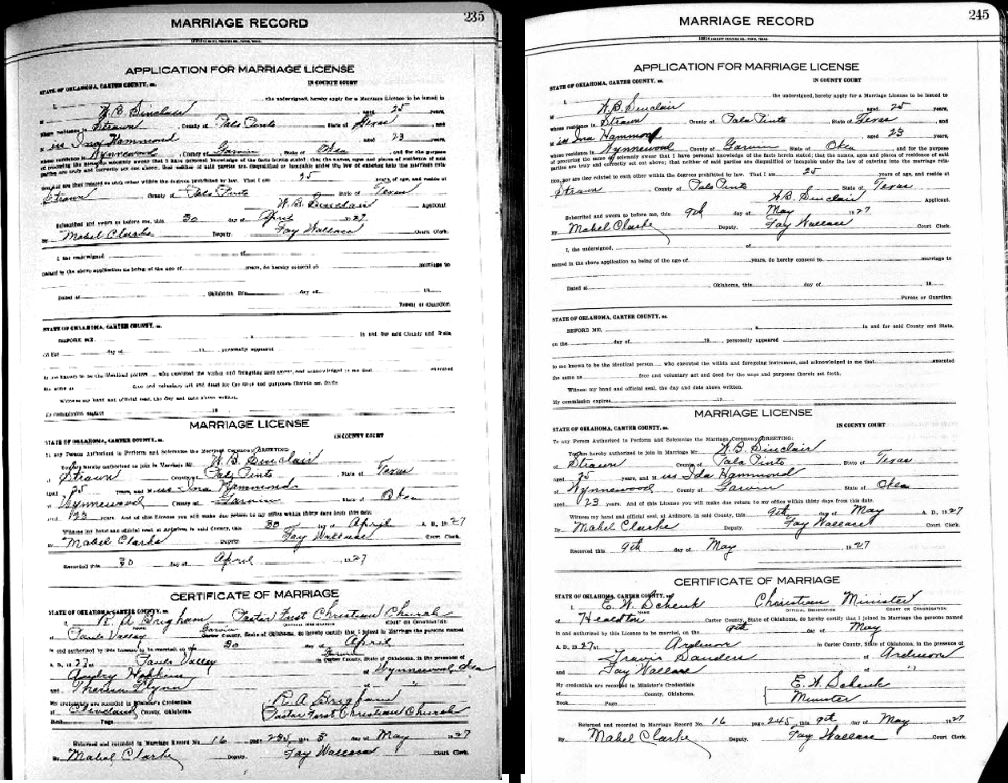 235
MARRIAGE RECORD
APPLICATION FOR MARRIAGE LICENSE
STATE OF OKLAHOMA, CARTER COUNTY, ss. IN COUNTY COURT
I, W. B. Sinclair the undersigned, hereby apply for a Marriage License to be issued to
M aged 25 years,
whose residence is Strawn, County of Palo Pinto State of Texas and
Miss Ida Hammond aged 23
whose residence is Wynnewood, County of Garvin, State of Okla, and for the purpose
of procuring the same do solemnly swear that I have personal knowledge of the facts herein stated; that the names, ages and places of residence of said
parties are truly and correctly set out above; that neither of said parties are disqualified or incapable under the law of entering into the marriage rela-
tion, nor are they related to each other within the degrees prohibited by law. That I am 25 years of age, and reside at
Strawn County of Palo Pinto State of Texas
W. B. Sinclair Applicant.
Subscribed and sworn to before me, this 30 day of April 1927
By Mabel Clarke Deputy. Fay Wallace Court Clerk.
I, the undersigned, of
named in the above application as being of the age of years, do hereby consent to marriage to
Dated at Oklahoma, this day of 19
Parent or Guardian.
STATE OF OKLAHOMA, CARTER COUNTY, ss.
BEFORE ME, a in and for said County and State,
on the day of 19, personally appeared
to me known to be the identical person who executed the within and foregoing instrument, and acknowledged to me that executed
the same as free and voluntary act and deed for the uses and purposes therein set forth.
Witness my hand and official seal, the day and date above written.
My commission expires 19
MARRIAGE LICENSE
STATE OF OKLAHOMA, CARTER COUNTY, ss. IN COUNTY COURT
To any Person Authorized to Perform and Solemnize the Marriage Ceremony—GREETING:
You are hereby authorized to join in Marriage Mr. W. B. Sinclair
of Strawn County of Palo Pinto State of Texas
aged 25 years, and Miss Ida Hammond
of Wynnewood County of Garvin State of Okla
aged 23 years. And of this License you will make due return to my office within thirty days from this date.
Witness my hand and official seal, at Ardmore, in said County, this 30 day of April A. D., 1927
By Mabel Clarke Deputy. Fay Wallace Court Clerk.
Recorded this 30 day of April 1927
CERTIFICATE OF MARRIAGE
STATE OF OKLAHOMA, CARTER COUNTY, ss.
I, R. A. Brigham Pastor First Christian Church
of Pauls Valley Garvin Carter County, State of Oklahoma, do hereby certify that I joined in Marriage the persons named
in and authorized by this License to be married, on the 30 day of April
A. D., 1927 at Pauls Valley Garvin in Carter County, State of Oklahoma, in the presence of
of Wynnewood, Okla
and
My credentials are recorded in Minister's Credentials
of Cleveland County, Oklahoma.
R. A. Brigham
Pastor First Christian Church
Book Page
Returned and recorded in Marriage Record No. 16 page 235 this 3 day of May 1927
By Mabel Clarke Deputy. Fay Wallace Court Clerk.
245
MARRIAGE RECORD
APPLICATION FOR MARRIAGE LICENSE
STATE OF OKLAHOMA, CARTER COUNTY, ss. IN COUNTY COURT
I, W. B. Sinclair the undersigned, hereby apply for a Marriage License to be issued to
M aged 25 years,
whose residence is Strawn County of Palo Pinto State of Texas and
Miss Ida Hammond aged 23 years,
whose residence is Wynnewood County of Garvin State of Okla and for the purpose
of procuring the same do solemnly swear that I have personal knowledge of the facts herein stated; that the names, ages and places of residence of said
parties are truly and correctly set out above; that neither of said parties are disqualified or incapable under the law of entering into the marriage rela-
tion, nor are they related to each other within the degrees prohibited by law. That I am 25 years of age, and reside at
Strawn County of Palo Pinto State of Texas
W. B. Sinclair Applicant.
Subscribed and sworn to before me, this 9th day of May 1927
By Mabel Clarke Deputy. Fay Wallace Court Clerk.
I, the undersigned, of
named in the above application as being of the age of years, do hereby consent to marriage to
Dated at Oklahoma, this day of 19
Parent or Guardian.
STATE OF OKLAHOMA, CARTER COUNTY, ss.
BEFORE ME, a in and for said County and State,
on the day of 19, personally appeared
to me known to be the identical person who executed the within and foregoing instrument, and acknowledged to me that executed
the same as free and voluntary act and deed for the uses and purposes therein set forth.
Witness my hand and official seal, the day and date above written.
My commission expires 19
MARRIAGE LICENSE
STATE OF OKLAHOMA, CARTER COUNTY, ss. IN COUNTY COURT
To any Person Authorized to Perform and Solemnize the Marriage Ceremony—GREETING:
You are hereby authorized to join in Marriage Mr. W. B. Sinclair
of Strawn County of Palo Pinto State of Texas
aged 25 years, and Miss Ida Hammond
of Wynnewood County of Garvin State of Okla
aged 23 years. And of this License you will make due return to my office within thirty days from this date.
Witness my hand and official seal, at Ardmore, in said County, this 9th day of May A. D., 1927
By Mabel Clarke Deputy. Fay Wallace Court Clerk.
Recorded this 9th day of May 1927
CERTIFICATE OF MARRIAGE
STATE OF OKLAHOMA, CARTER COUNTY, ss.
I, E. W. Schenk Christian Minister
NAME OFFICIAL DESIGNATION COURT OR CONGREGATION
of Healdton Carter County, State of Oklahoma, do hereby certify that I joined in Marriage the persons named
in and authorized by this License to be married, on the 9th day of May
A. D., 1927 at Ardmore in Carter County, State of Oklahoma, in the presence of
Travis Sanders of Ardmore
and Fay Wallace of "
My credentials are recorded in Minister's Credentials
of County, Oklahoma.
E. W. Schenk
Minister
Book Page
Returned and recorded in Marriage Record No. 16 page 245 this 9th day of May 1927
By Mabel Clarke Deputy. Fay Wallace Court Clerk.